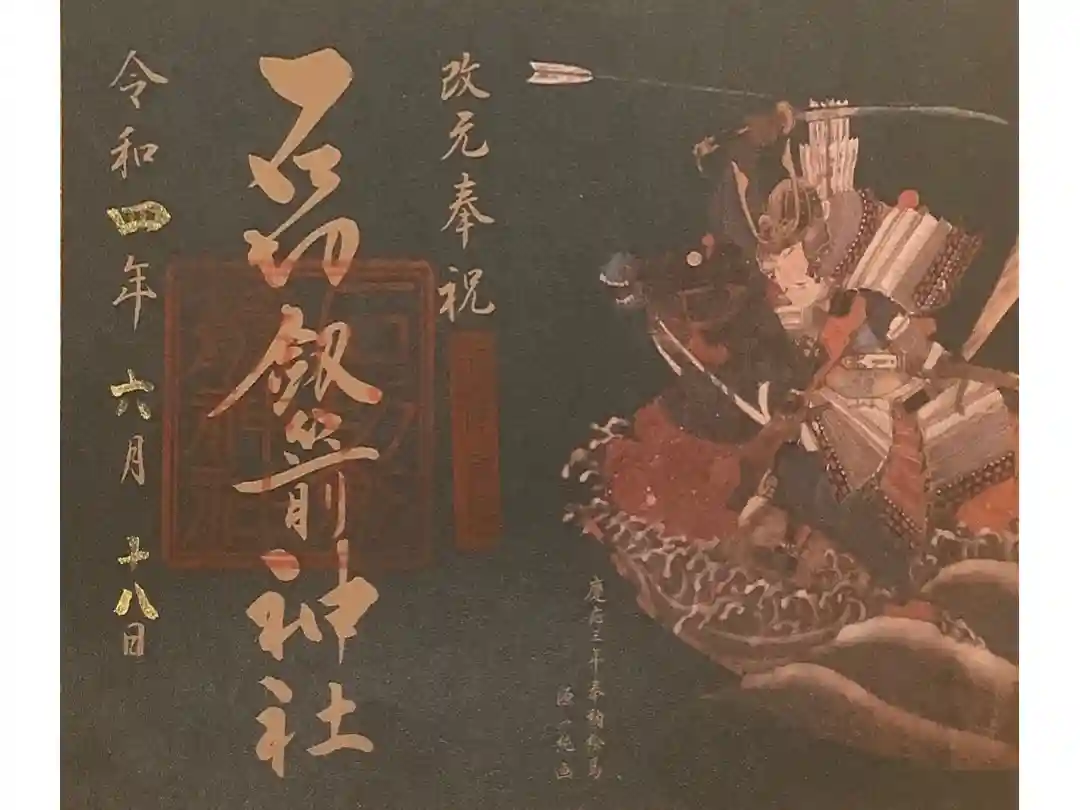 慶応三年奉納絵馬
改元奉祝
石切劔箭神社
令和四年六月十八日